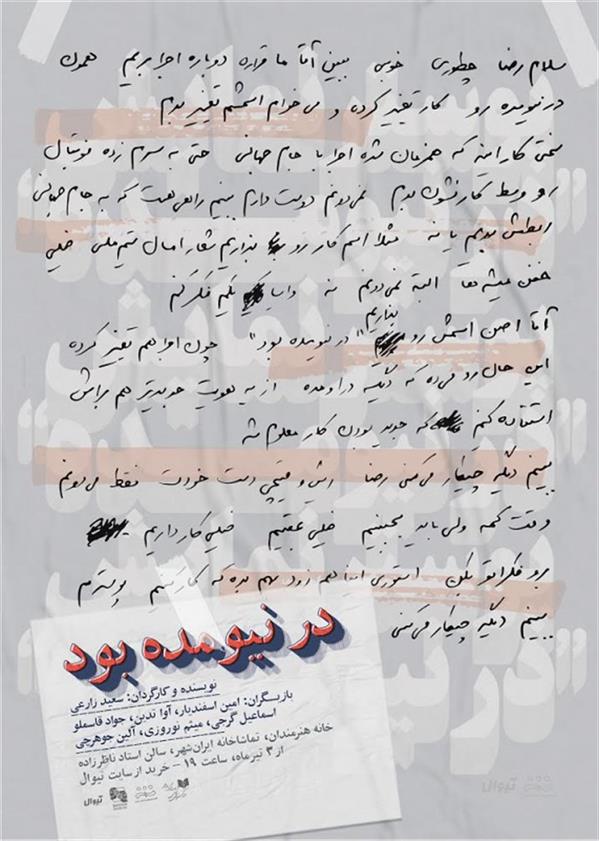 سلام رضا چطوری خوبی ببین آقا ما قراره دوباره اجرا بریم همون
در نیومده رو کار تغییر کرده و می خوام اسمشم تغییر بدم
سختی کار اینه که همزمان شده اجرا با جام جهانی حتی به سرم زده فوتبال
رو وسط کار نشون بدم نمی دونم دوست دارم ببینم رابطی هست که به جام جهانی
ربطش بدیم یا نه مثلا اسم کار رو بذاریم شعار امسال تیم ملی خیلی
خفن میشه ها البته نمی دونم نه واسا یکم فکر کنم
آقا اصن اسمش رو بذاریم "در نیومده بود" چون اجرا هم تغییر کرده
این حال رو می ده که دیگه در اومده از یه هویت جدیدتر هم براش
استفاده کنم که جدید بودن کار معلوم شه
ببینم دیگه چیکار می کنی رضا ریش و قیچی دست خودت فقط می دونم
وقت کمه ولی باید بجنبیم خیلی عقبیم خیلی کار داریم
برو فکراتو بکن استوری اینا هم زود بهم بده که کار کنیم پوسترم
ببینم دیگه چیکار می کنی
در نیومده بود
نویسنده و کارگردان: سعید زارعی
بازیگران: امین اسفندیار، آوا تدین، جواد قاسملو
اسماعیل گرجی، میثم نوروزی، آلین جوهرچی
خانه هنرمندان، تماشاخانه ایران‌شهر، سالن استاد ناظرزاده
از ۳ تیرماه، ساعت ۱۹ - خرید از سایت تیوال
تیوال
تیوال